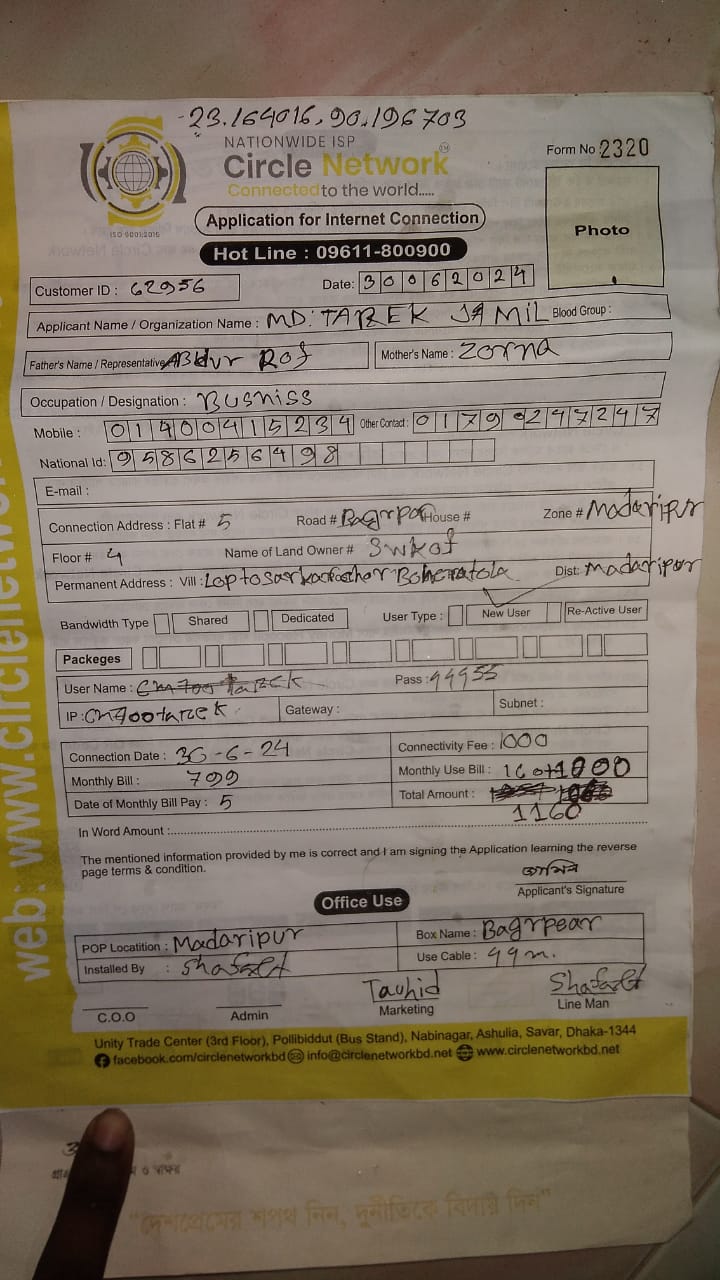 23.164016, 90.196703
NATIONWIDE ISP
Circle Network
Connected to the world.....
ISO 9001:2015
Form No 2320
Photo
Application for Internet Connection
Hot Line : 09611-800900
Customer ID : 62956 Date: 30062024
Applicant Name / Organization Name : MD: TAREK JAMIL Blood Group :
Father's Name / Representative ABdur Rof Mother's Name : Zorna
Occupation / Designation : Busniss
Mobile : 01400415234 Other Contact : 0179 297247
National Id: 9586256498
E-mail :
Connection Address : Flat # 5 Road # House # Zone # Madaripur
Floor # 4 Name of Land Owner #
Permanent Address : Vill : Dist: Madaripur
Bandwidth Type Shared Dedicated User Type : New User Re-Active User
Packeges
User Name : Pass :
IP : Gateway : Subnet :
Connection Date : 30-6-24 Connectivity Fee : 1000
Monthly Bill : 799 Monthly Use Bill : 160+1000
Date of Monthly Bill Pay : 5 Total Amount :
1160
In Word Amount :
The mentioned information provided by me is correct and I am signing the Application learning the reverse
page terms & condition.
Applicant's Signature
Office Use
POP Locatition : Madaripur Box Name : Bagrpear
Installed By : Use Cable : 44m.
Tauhid
C.O.O Admin Marketing Line Man
Unity Trade Center (3rd Floor), Pollibiddut (Bus Stand), Nabinagar, Ashulia, Savar, Dhaka-1344
facebook.com/circlenetworkbd info@circlenetworkbd.net www.circlenetworkbd.net
web: www.circlenetwor
ও স্বাক্ষর
"দেশপ্রেমের শপথ নিন, দুর্নীতিকে বিদায় দিন"